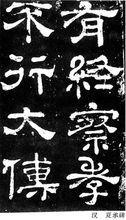 有經察孝
不行大傅
汉 夏承碑